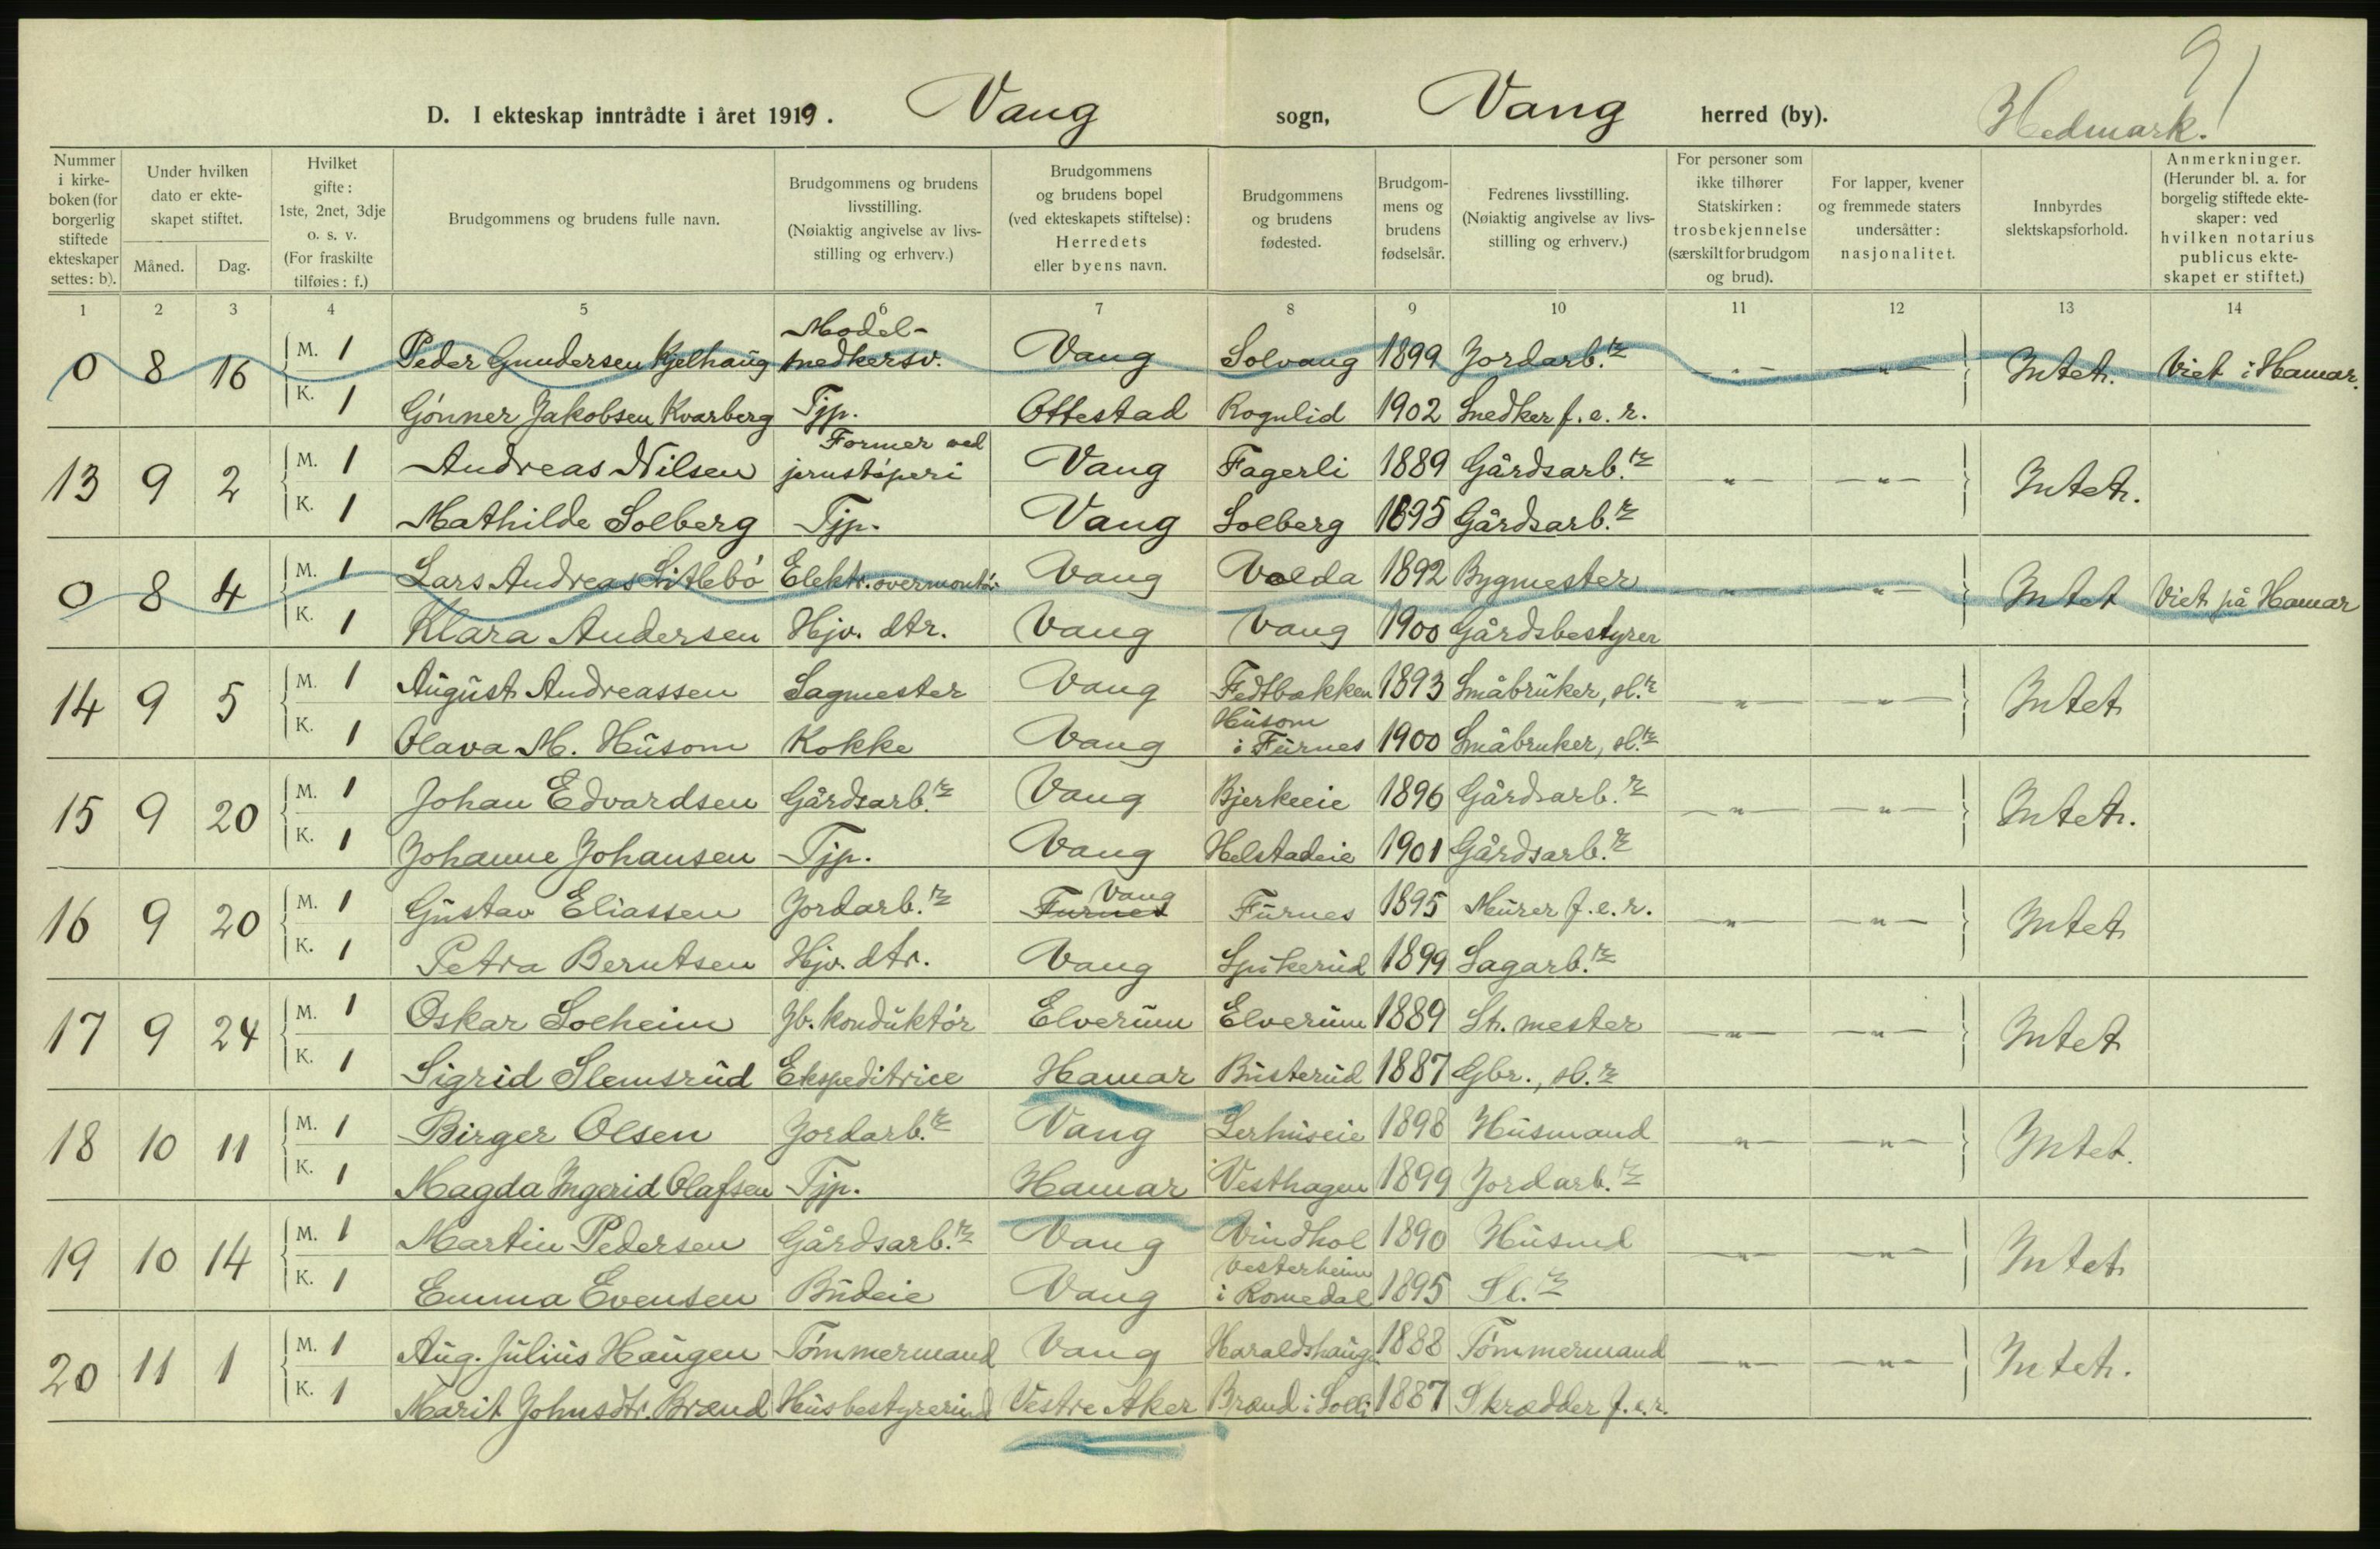 91
D. I ekteskap inntrådte i året 1919. Vang sogn, Vang herred (by). Hedmark.
Nummer i kirkeboken (for borgerlig stiftede ekteskaper settes: b).
Under hvilken dato er ekteskapet stiftet.
Måned. Dag.
Hvilket gifte: 1ste, 2net, 3dje o. s. v. (For fraskilte tilføies: f.)
Brudgommens og brudens fulle navn.
Brudgommens og brudens livsstilling. (Nøiaktig angivelse av livsstilling og erhverv.)
Brudgommens og brudens bopel (ved ekteskapets stiftelse): Herredets eller byens navn.
Brudgommens og brudens fødested.
Brudgommens og brudens fødselsår.
Fedrenes livsstilling. (Nøiaktig angivelse av livsstilling og erhverv.)
For personer som ikke tilhører Statskirken: trosbekjennelse (særskilt for brudgom og brud).
For lapper, kvener og fremmede staters undersåtter: nasjonalitet.
Innbyrdes slektskapsforhold.
Anmerkninger. (Herunder bl. a. for borgelig stiftede ekteskaper: ved hvilken notarius publicus ekteskapet er stiftet.)
1 2 3 4 5 6 7 8 9 10 11 12 13 14
0 8 16 M. 1 Peder Gundersen Kjelhaug Modelsnedkersv. Vang Solvang 1899 Jordarb.r — " — — " — Intet. Viet i Hamar.
K. 1 Gønner Jakobsen Kvarberg Tjp. Ottestad Rognlid 1902 Snedker f.e.r.
13 9 2 M. 1 Andreas Nilsen Former ved jernstøperi Vang Fagerli 1889 Gårdsarb.r — " — — " — Intet.
K. 1 Mathilde Solberg Tjp. Vang Solberg 1895 Gårdsarb.r
0 8 4 M. 1 Lars Andreas Litlebø Elektr. overmontør Vang Volda 1892 Bygmester — " — — " — Intet Viet på Hamar
K. 1 Klara Andersen Hjv. dtr. Vang Vang 1900 Gårdsbestyrer
14 9 5 M. 1 August Andreassen Sagmester Vang Fedtbakken 1893 Småbruker, sl.r — " — — " — Intet
K. 1 Olava M. Husom Kokke Vang Husom i Furnes 1900 Småbruker, sl.r
15 9 20 M. 1 Johan Edvardsen Gårdsarb.r Vang Bjerkeeie 1896 Gårdsarb.r — " — — " — Intet.
K. 1 Johanne Johansen Tjp. Vang Helstadeie 1901 Gårdsarb.r
16 9 20 M. 1 Gustav Eliassen Jordarb.r Furnes Vang Furnes 1895 Murer f.e.r. — " — — " — Intet
K. 1 Petra Berntsen Hjv. dtr. Vang Spikerud 1899 Sagarb.r
17 9 24 M. 1 Oskar Solheim Jb. konduktør Elverum Elverum 1889 St. mester — " — — " — Intet
K. 1 Sigrid Slemsrud Ekspeditrice Hamar Busterud 1887 Gbr., sl.r
18 10 11 M. 1 Birger Olsen Jordarb.r Vang Lerhuseie 1898 Husmand — " — — " — Intet.
K. 1 Magda Ingerid Olafsen Tjp. Hamar Vesthagen 1899 Jordarb.r
19 10 14 M. 1 Martin Pedersen Gårdsarb.r Vang Vindhol 1890 Husmd — " — — " — Intet
K. 1 Emma Evensen Budeie Vang Vesterheim i Romedal 1895 Sl.r
20 11 1 M. 1 Aug. Julius Haugen Tømmermand Vang Haraldshaugen 1888 Tømmermand — " — — " — Intet.
K. 1 Marit Johnsdtr. Brænd Husbestyrerind Vestre Aker Brænd i Solli 1887 Skrædder f.e.r.